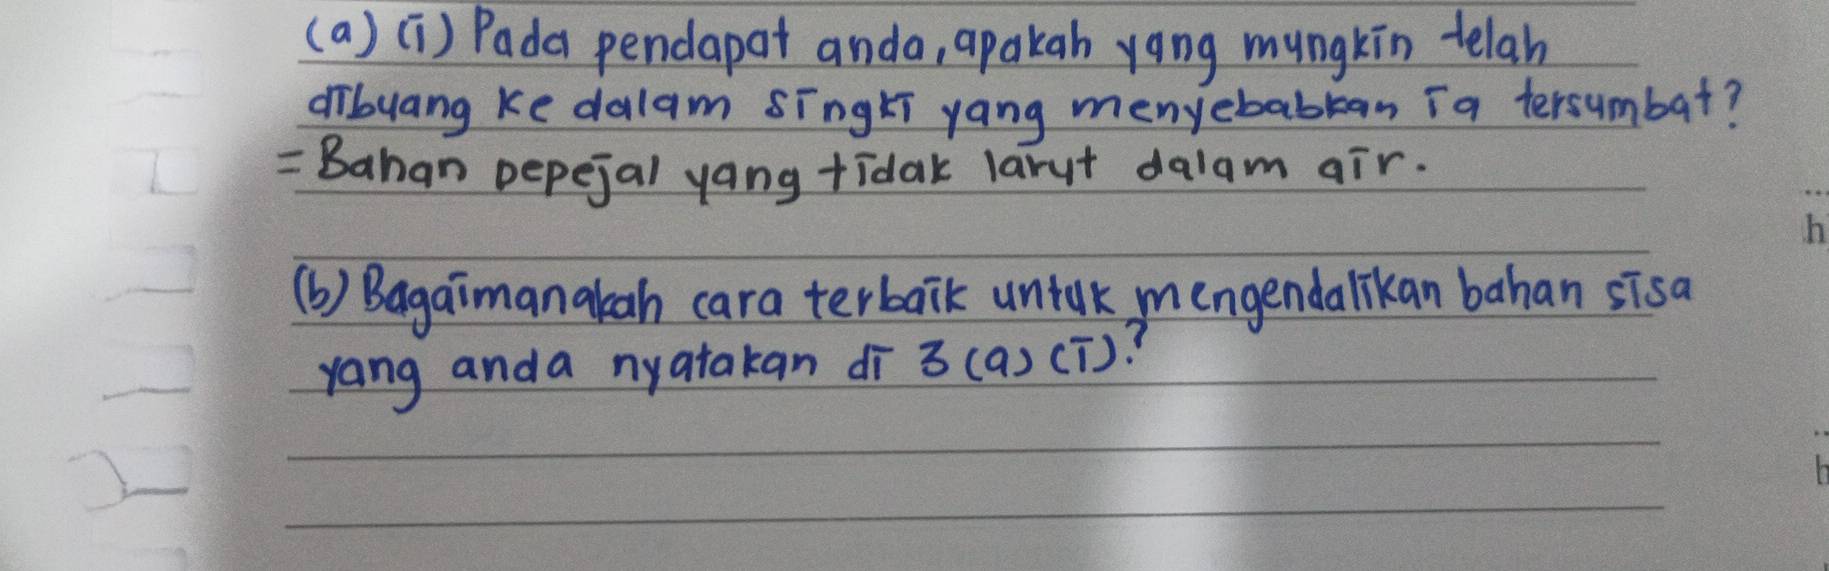 (a) (i) Pada pendapat anda, apakah yang mungkin telah
dibuang ke dalam singki yang menyebabkan ia tersumbat?
= Bahan pepejal yang tidak larut dalam air.
(b) Bagaimanakah cara terbaik untuk mengendalikan bahan sisa
yang anda nyatakan di 3 (a) (i).?